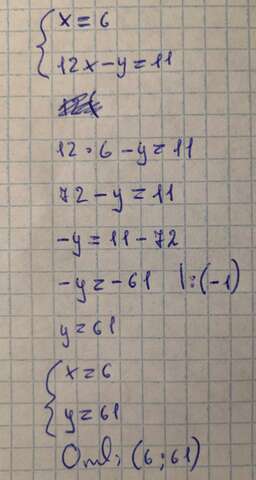 x = 6
12x - y = 11
12 · 6 - y = 11
72 - y = 11
-y = 11 - 72
-y = -61 |:(-1)
y = 61
x = 6
y = 61
Отв: (6; 61)